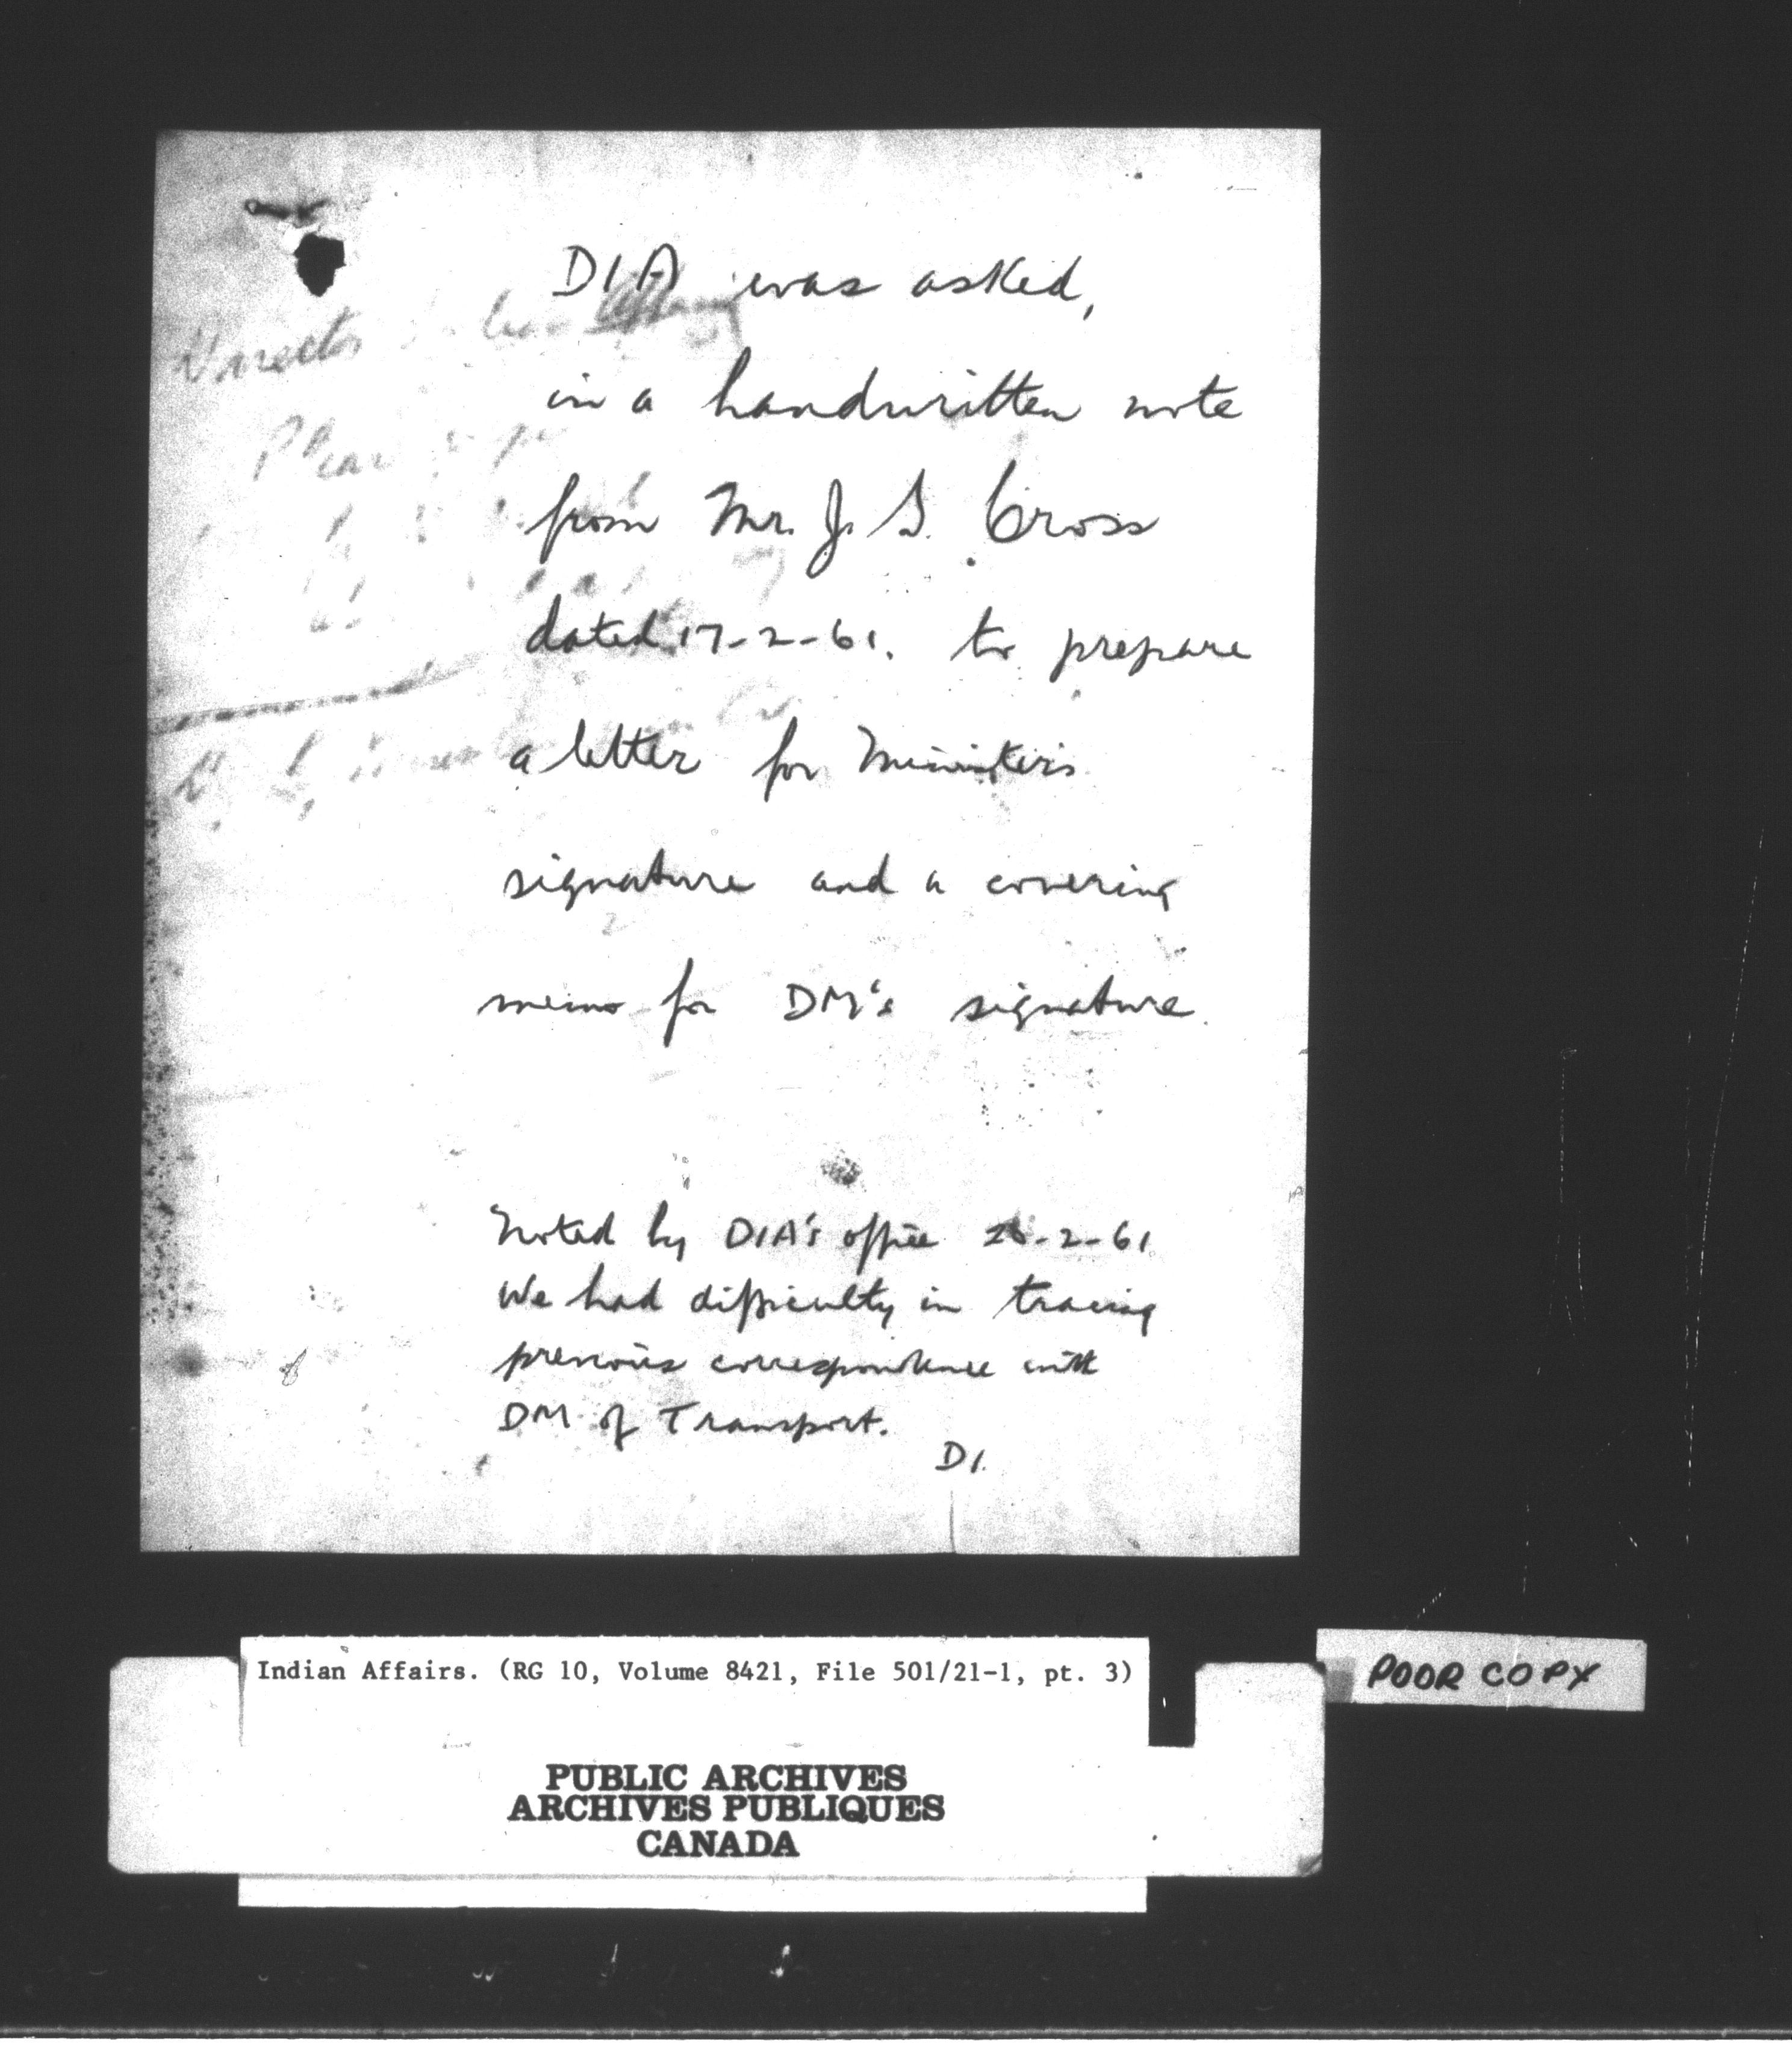 DIA was asked,
in a handwritten note
from Mr. J. G. Cross
dated 17-2-61. to prepare
a letter for Minister's
signature and a covering
memo for DM's signature.
Noted by DIA's office -2-61
We had difficulty in tracing
previous correspondence with
DM of Transport.
D1.
Director
Indian Affairs. (RG 10, Volume 8421, File 501/21-1, pt. 3)
POOR COPY
PUBLIC ARCHIVES
ARCHIVES PUBLIQUES
CANADA